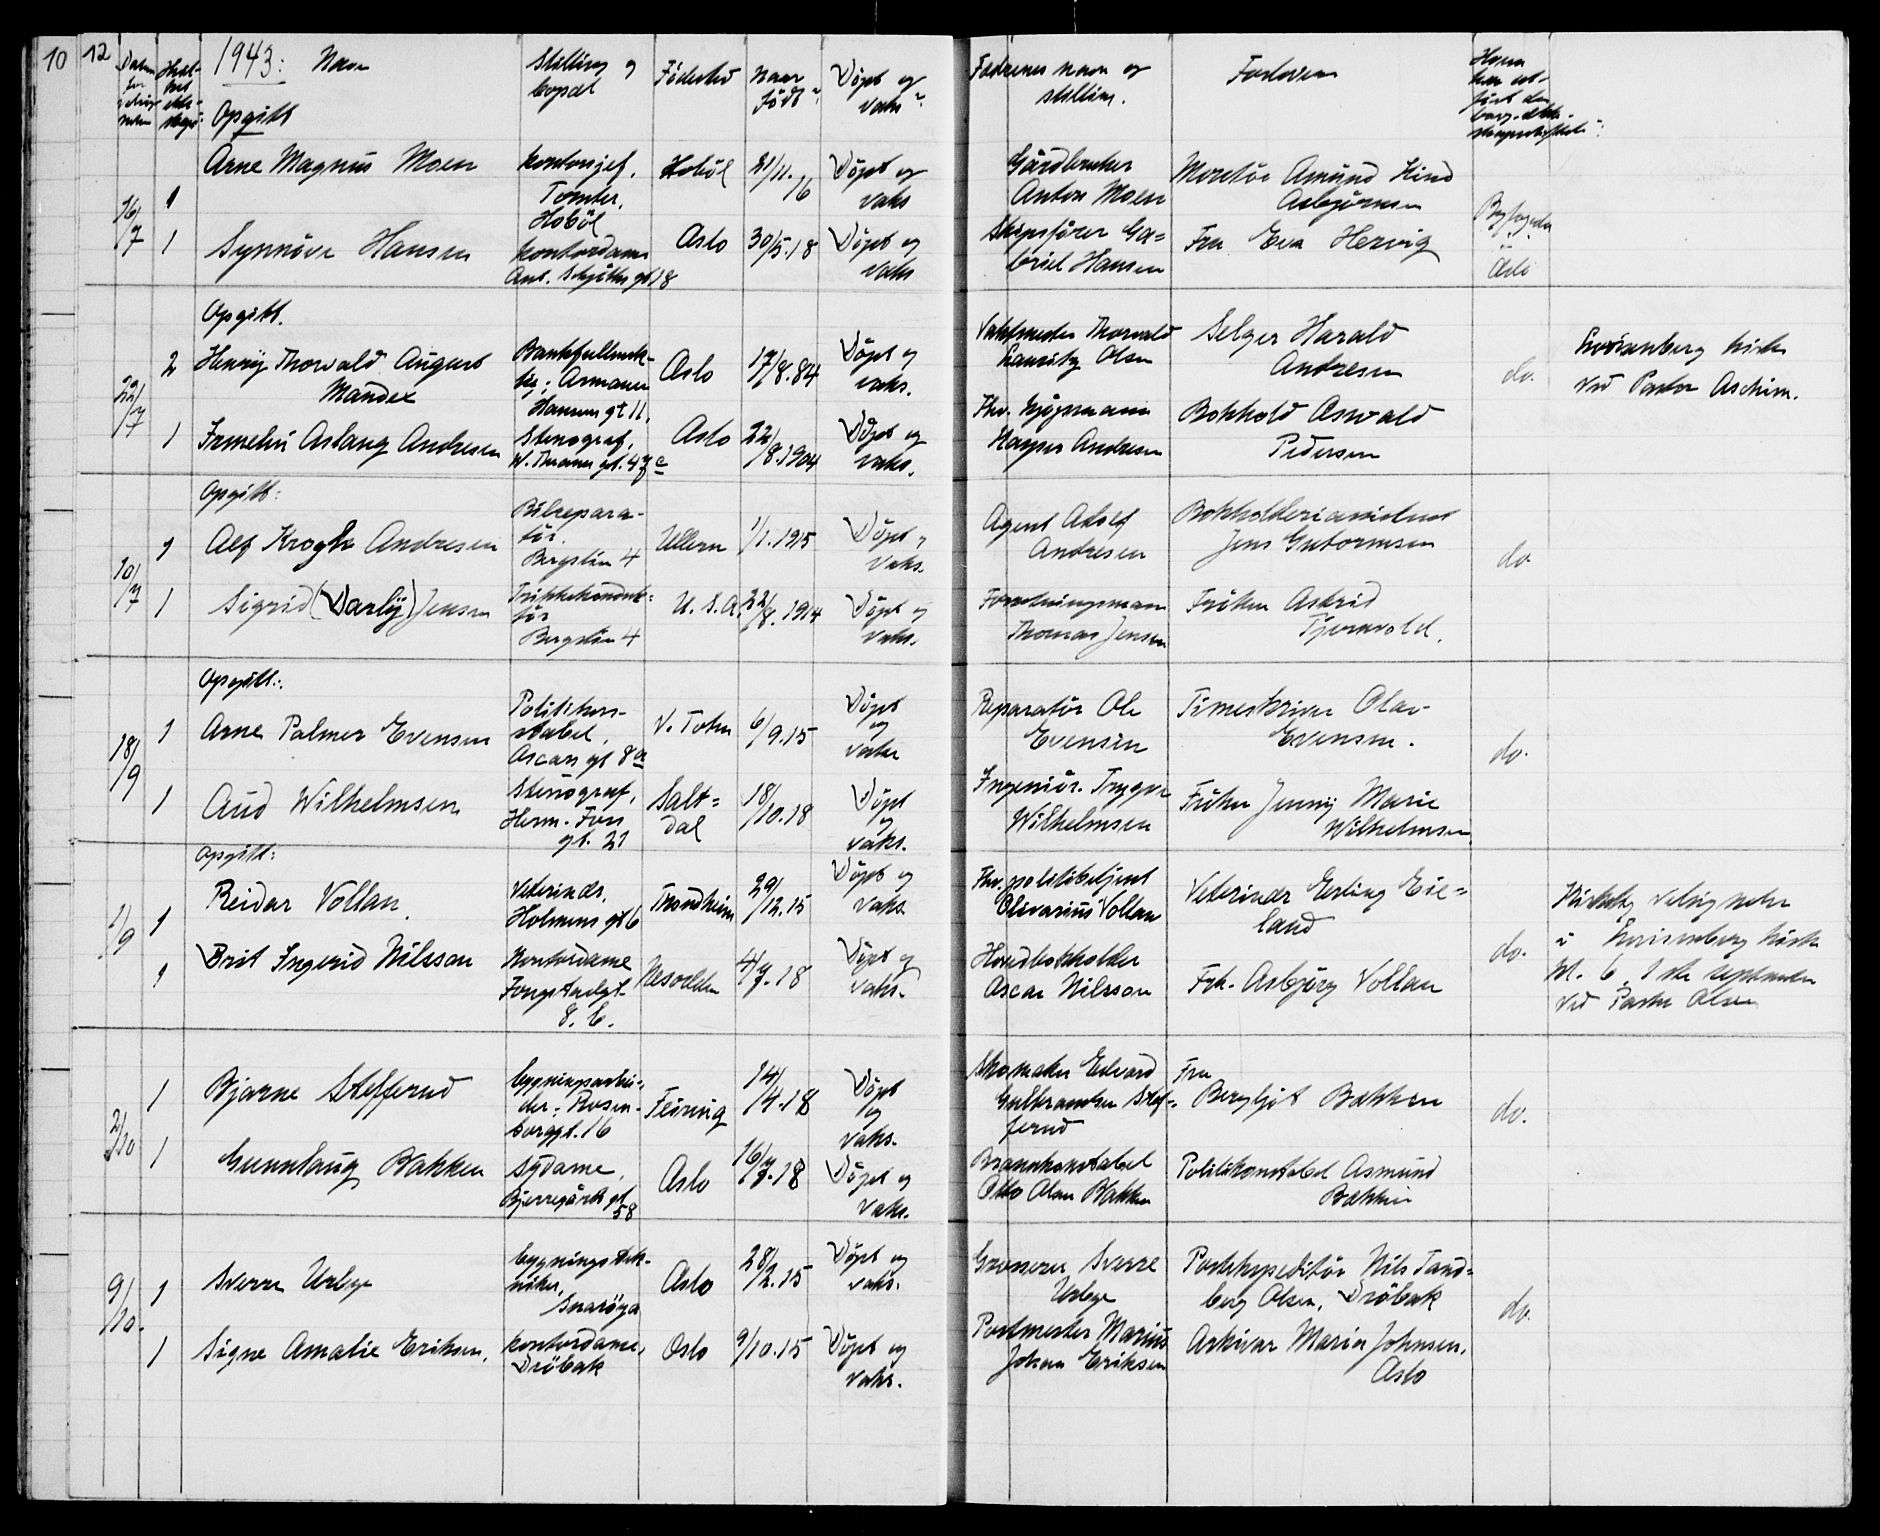 10 12
1943: Navn
Stilling og bopæl
Fødested
Naar født?
Döpt og vaks?
Fædrenes navn og stilling.
Forlovere
Opgitt
16/7
1 Arne Magnus Moen
kontorsjef, Tomter, Hobøl
Hobøl
21/11.16
Döpt og vaks
Gårdbruker Anton Moen
Montör Amund Hind Asbjørnsen
1 Synnöve Hansen
kontordame Ant. Schjöths gt 18
Oslo
30/5.18
Döpt og vaks
Skipsförer Gabriel Hansen
Fru Eva Herwig
Byfogden i Oslo
Opgitt.
22/7
2 Henry Thorvald August Mandex
Hansens gt 11.
Oslo
17/8.84
Döpt og vaks.
Vaktmester Thorvald Lauritz Olsen
Selger Harald Andresen
do.
Lovisenberg kirke ved Pastor Aschim.
1 Aslaug Andresen
Stenograf, W. Thranes gt. 47 c
Oslo
22/8.1904
Döpt og vaks.
Andresen
Bokhold Oswald Pedersen
Opgitt:
10/7
1 Alf Krogh Andresen
Bilreparatör. Bergslien 4
Ullern
1/1.1915
Döpt og vaks.
Agent Adolf Andresen
Bokholderiassistent Jens Gutormsen
do.
1 Sigrid (Darly) Jensen
Trikkekonduktör Bergslien 4
U.S.A.
22/8.1914
Döpt og vaks.
Forretningsmann Thomas Jensen
Fröken Astrid Tjernvold.
Opgitt:
18/9
1 Arne Palmer Evensen
Politikonstabel, Oscars gt 8a
V. Toten
6/9.15
Döpt og vaks
Reparatör Ole Evensen
Timeskriver Olav Evensen.
do.
1 Aud Wilhelmsen
Stenograf, Herm. Foss gt. 21
Saltdal
18/10.18
Döpt og vaks.
Ingeniör Trygve Wilhelmsen
Fröken Jenny Marie Wilhelmsen
Opgitt:
1/9
1 Reidar Vollan
Veterinær, Holmens gt 6
Trondheim
29/12.15
Döpt og vaks
Fhv. politibetjent Olivarius Vollan
Veterinær Erling Eieland
do.
Kirkelig velsignelse i Lovisenberg kirke kl. 6 1ste september ved Pastor Olsen
1 Brit Ingerid Nilsson
Kontordame 8. b.
Nesodden
4/7.18
Döpt og vaks.
Hovedbokholder Oscar Nilsson
Frk. Asbjörg Vollan
2/10
1 Bjarne Stefferud
bygningsarbeider; Rosenborggt. 16
Feiring
14/4.18
Döpt og vaks.
Skomaker Edvard Gulbrandsen Stefferud
Fru Bergljot Bakken
do.
1 Gunnlaug Bakken
sydame, Bjerregårds gt 58
Oslo
16/7.18
Döpt og vaks.
Brannkonstabel Otto Olsen Bakken
Politikonstabel Asmund Bakken
9/10.
1 Sverre Urbye
bygningstekniker, Snaröya
Oslo
28/2.15
Döpt og vaks.
Grosserer Sverre Urbye
Postekspeditör Nils Tandberg Olsen, Dröbak
do.
1 Signe Amalie Eriksen,
kontordame, Dröbak
Oslo
9/10.15
Döpt og vaks.
Postmester Marius Johan Eriksen
Arkivar Maria Johnsen, Oslo